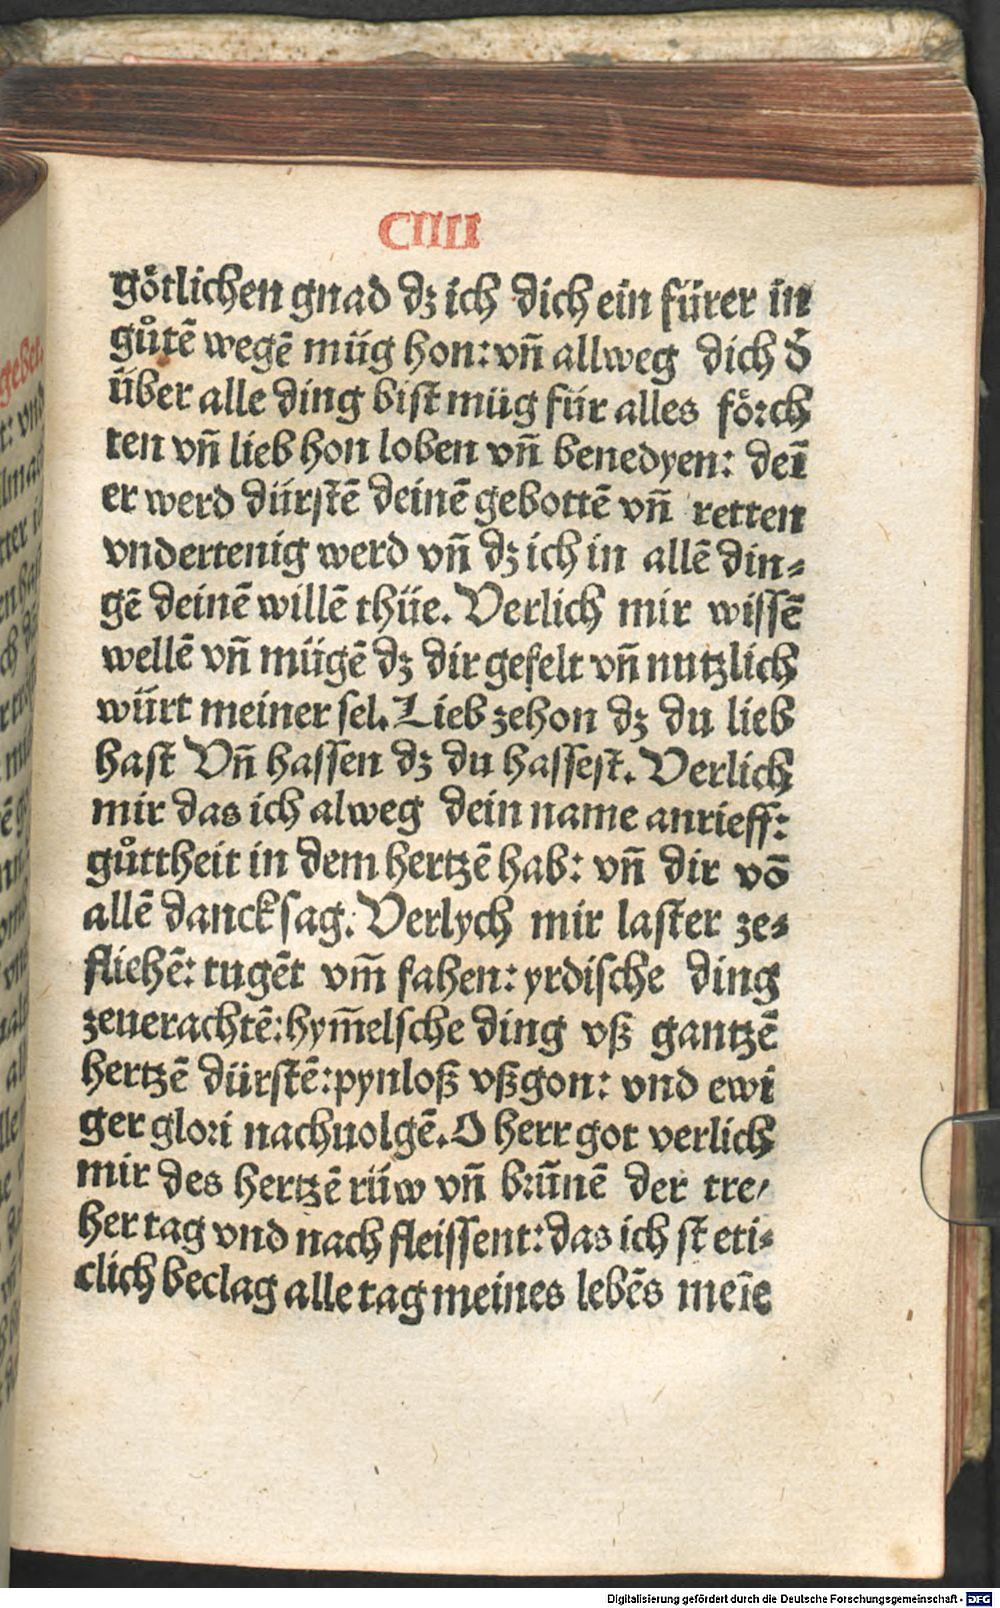 CIIII
götlichen gnad dz ich dich ein fürer in
gůtē wegē müg hon: vn̄ allweg dich d̄
über alle ding bist müg für alles förch
ten vn̄ lieb hon loben vn̄ benedyen: deī
er werd dürstē deinē gebottē vn̄ retten
vndertenig werd vn̄ dz ich in allē din⸗
gē deinē willē thüe. Verlich mir wissē
wellē vn̄ mügē dz dir gefelt vn̄ nutzlich
würt meiner sel. Lieb zehon dz du lieb
hast Vn̄ hassen dz du hassest. Verlich
mir das ich alweg dein name anrieff:
gůttheit in dem hertzē hab: vn̄ dir vō
allē danck sag. Verlych mir laster ze⸗
fliehē: tugēt vm̄ fahen: yrdische ding
zeuerachtē: hym̄elsche ding vß gantzē
hertzē dürstē: pynloß vßgon: vnd ewi
ger glori nachuolgē. O herr got verlich
mir des hertzē rüw vn̄ brūnē der tre⸗
her tag vnd nach fleissent: das ich st eti⸗
clich beclag alle tag meines lebēs meīe
geбet.
Digitalisierung gefördert durch die Deutsche Forschungsgemeinschaft - DFG